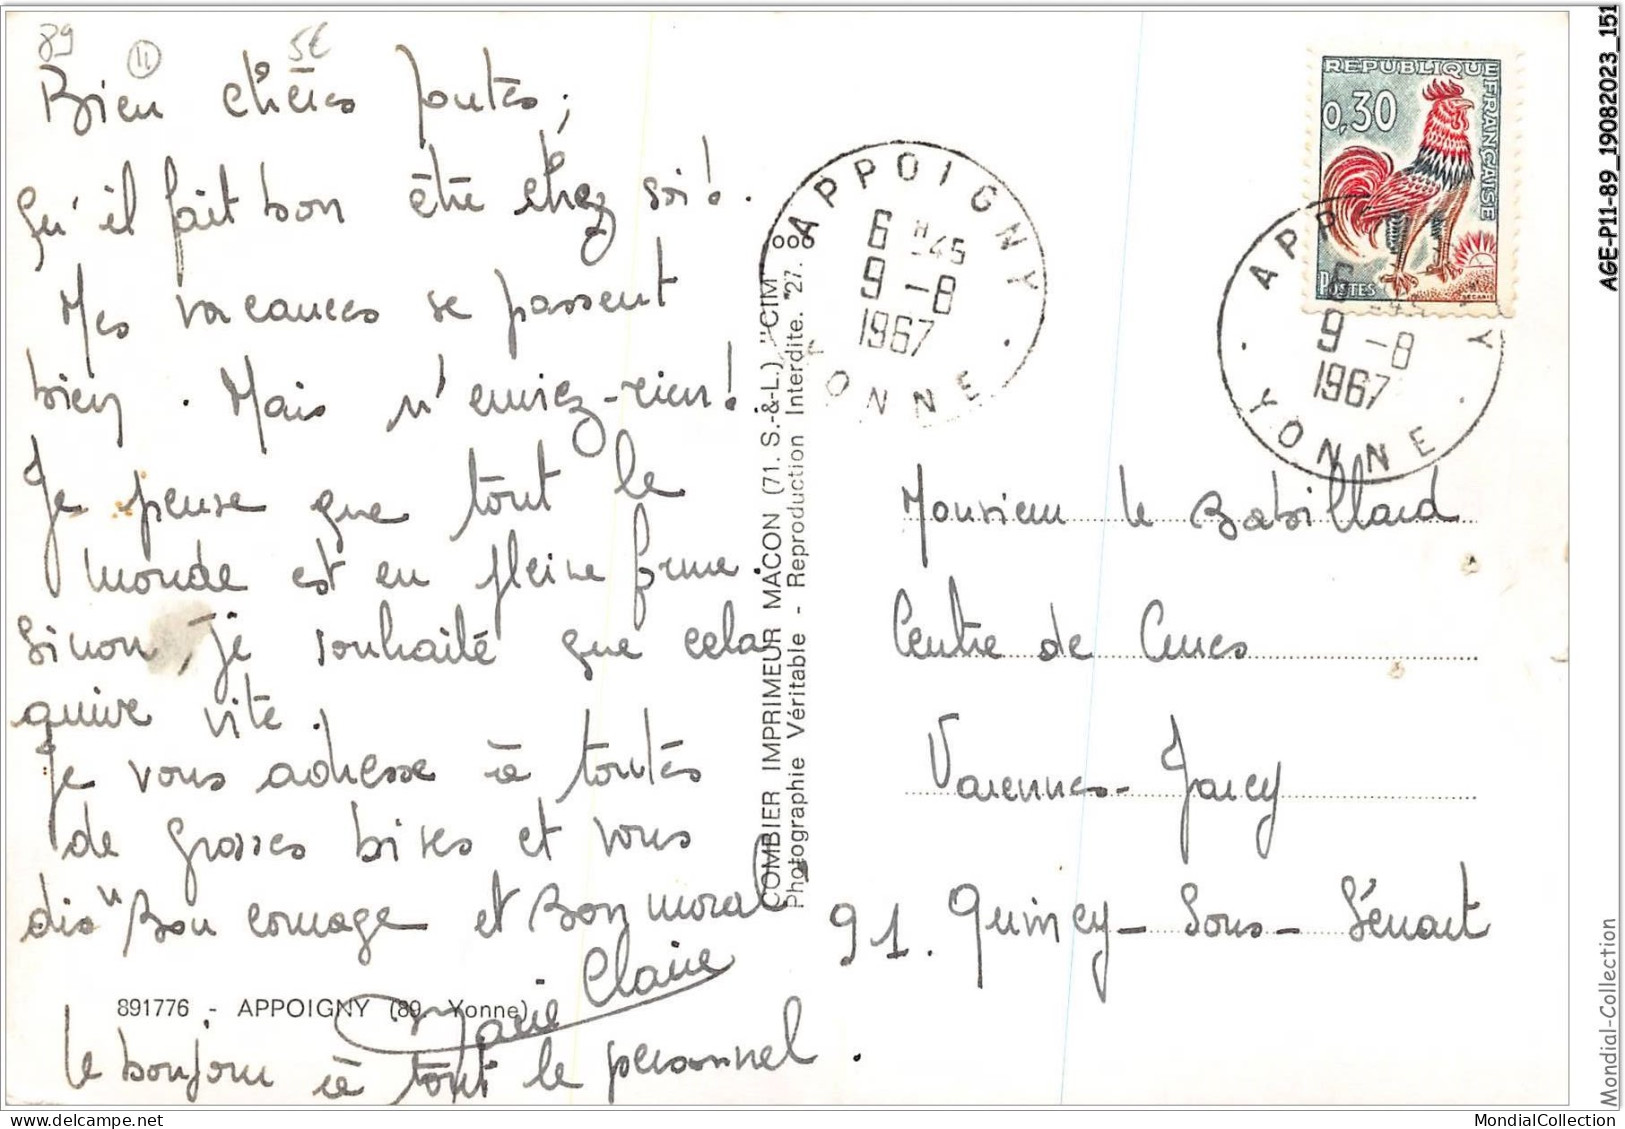 89
11
5€
Bien chères toutes,
Qu'il fait bon être chez soi!.
Mes vacances se passent
bien. Mais n'enviez-rien!
Je pense que tout le
monde est en pleine forme.
Sinon, je souhaite que cela
arrive vite.
Je vous adresse à toutes
de grosses bises et vous
dis "Bon courage et Bon moral
Marie Claire
891776 - APPOIGNY (89. Yonne)
le bonjour à tout le personnel.
COMBIER IMPRIMEUR MACON (71. S.-&-L.) "CIM"
Photographie Véritable - Reproduction Interdite. 27. 000
APPOIGNY
6 H 45
9 - 8
1967
YONNE
REPUBLIQUE FRANÇAISE
0,30
POSTES
DECARIS
APPOIGNY
6 H 45
9 - 8
1967
YONNE
Monsieur le Babillard
Centre de Cures
Varennes-Jarcy
91. Quincy-Sous-Sénart
AGE-P11-89_19082023_151
Mondial-Collection
MondialCollection